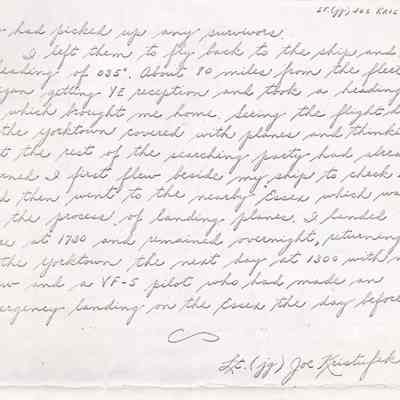 Lt. (jg) JOE KRIS
had picked up any survivors.
I left them to fly back to the ship and
heading of 035°. About 80 miles from the fleet
gan getting YE reception and took a heading
which brought me home. Seeing the flight d
the Yorktown covered with planes and thinki
t the rest of the searching party had alrea
rned I first flew beside my ship to check
d then went to the nearby Essex which wa
the process of landing planes. I landed
re at 1730 and remained overnight, returning
the Yorktown the next day at 1300 with
w and a VF-5 pilot who had made an
ergency landing on the Essex the day before
Lt. (jg) Joe Kristufek